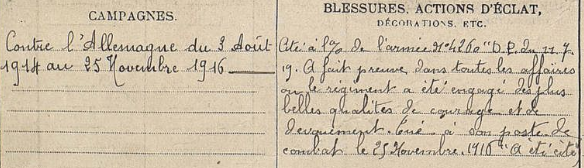 CAMPAGNES.
Contre l'Allemagne du 3 Août
1914 au 25 Novembre 1916
BLESSURES, ACTIONS D'ÉCLAT,
DÉCORATIONS, ETC.
Cité à l'O/ de l'armée N° 4260 "D.P. du 11.7
19. A fait preuve dans toutes les affaires
ou le régiment a été engagé des plus
belles qualités de courage et de
devouement. Tué à son poste de
combat le 25 Novembre 1916 "A été cité